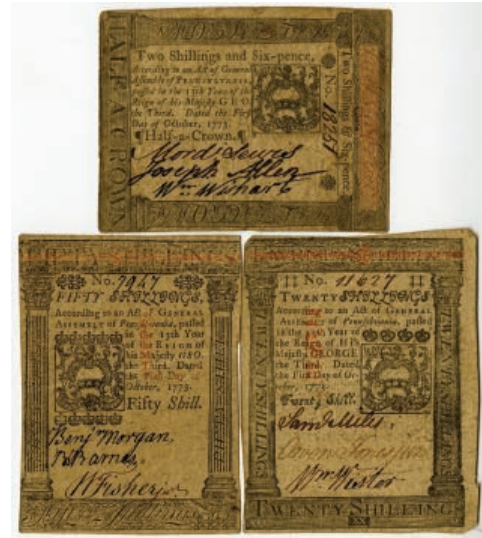 HALF A CROWN
Two Shillings and Six-pence.
According to an Act of General
Assembly of PENNSYLVANIA,
passed in the 13th Year of the
Reign of his Majesty GEO.
the Third. Dated the First
Day of October, 1773.
Half-a-Crown.
No. 18257
Two Shillings & Six-pence
Mord Lewis
Joseph Allen
Wm Wishart
No. 7947
FIFTY SHILLINGS,
According to an Act of GENERAL
ASSEMBLY of Pennsylvania, passed
in the 13th Year
of the REIGN of
his Majesty GEO.
the Third. Dated
the First Day of
October, 1773.
Fifty Shill.
Benj Morgan,
Barnes
W Fisher jr
No. 11627
TWENTY SHILLINGS,
According to an Act of GENERAL
Assembly of Pennsylvania, passed
in the 13th Year of
the Reign of His
Majesty GEORGE
the Third. Dated
the First Day of Oc-
tober, 1773.
Twenty Shill.
Saml Miles,
Owen Jones
Wm
TWENTY SHILLINGS
TWENTY SHILLING
XX